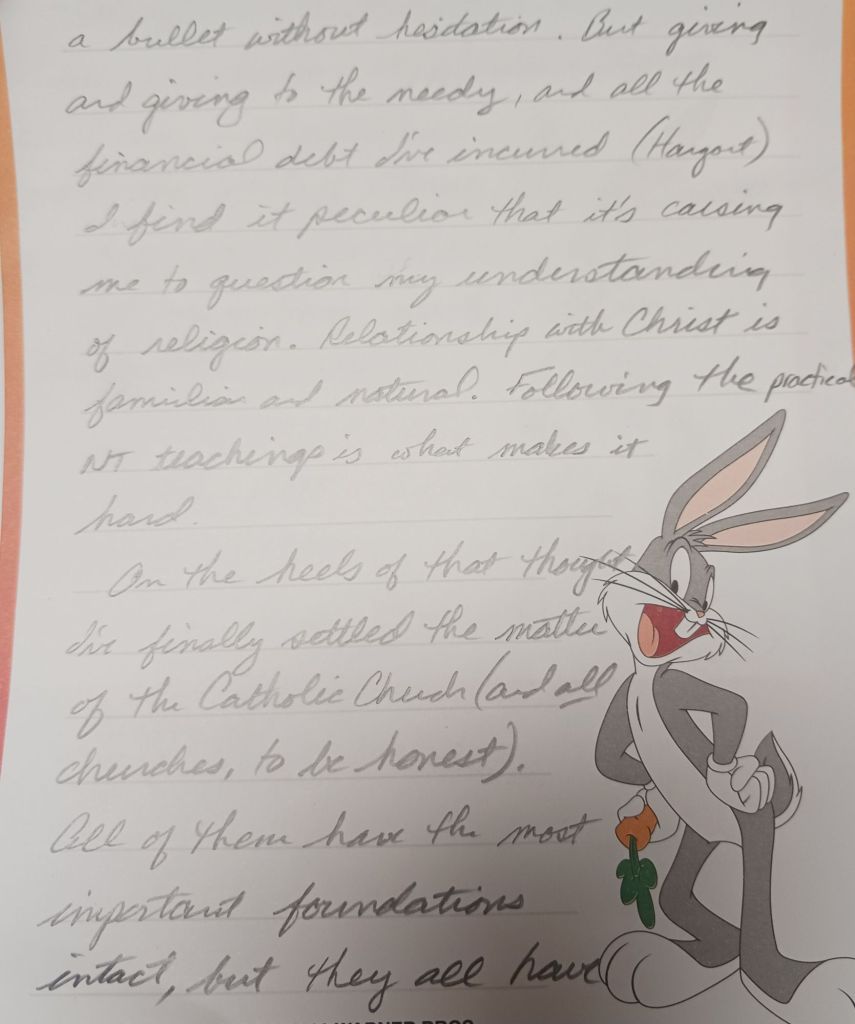 a bullet without hesidation. But giving
and giving to the needy, and all the
financial debt I've incurred (Hargort)
I find it peculiar that it's causing
me to question my understanding
of religion. Relationship with Christ is
familiar and natural. Following the practical
NT teachings is what makes it
hard.
On the heels of that thought
I've finally settled the matter
of the Catholic Church (and all
churches, to be honest).
All of them have the most
important foundations
intact, but they all have
WARNER BROS